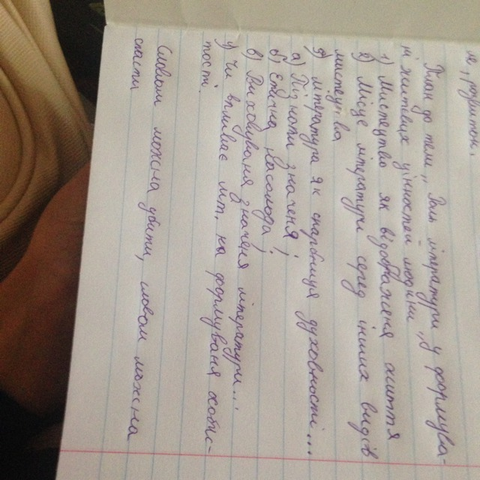 План до теми „Роль літератури у формува-
ні життвих цінностей людини"
1) Мистецтво як відображеня життя
2) Місце літератури серед інших видів
мистецтва
3) література як скарбниця духовності...
а) Пізнавн значеня;
б) Етична насолода;
в) Виховуваня значеня літератури...
Чи впливає літ. на формуваня
тості.
Словом можна убити, словом можна
спасти